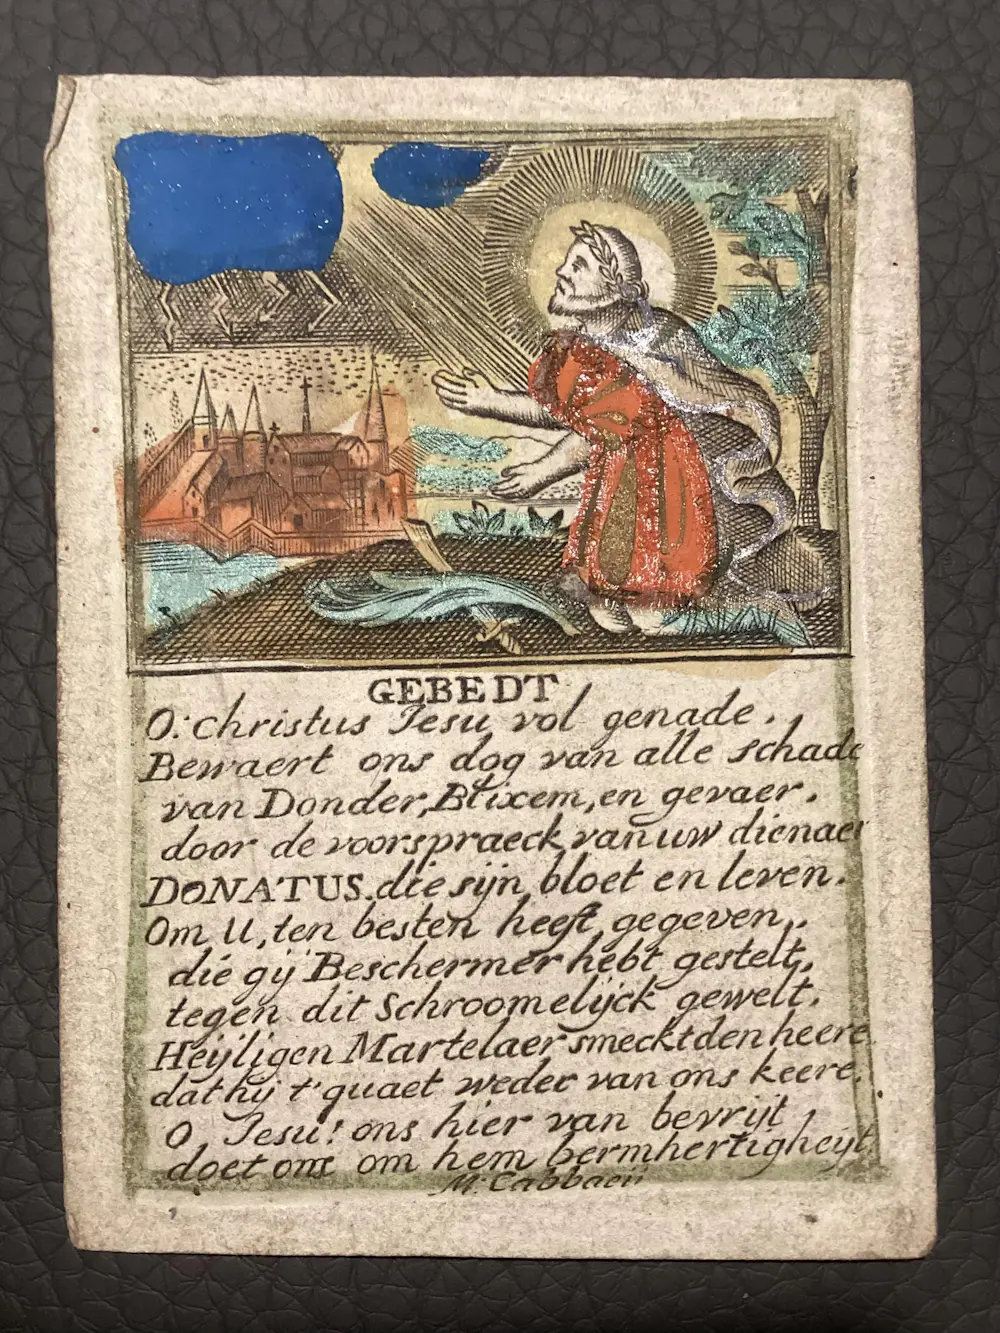 GEBEDT
O: Christus Jesu vol genade.
Bewaert ons dog van alle schade
van Donder, Blixem, en gevaer.
door de voorspraeck van uw dienaer
DONATUS. die sijn bloet en leven.
Om U, ten besten heeft gegeven.
die gij Beschermer hebt gestelt,
tegen dit Schroomelijck gewelt.
Heijligen Martelaer smeckt den heere
dat hij t'quaet weder van ons keere.
O, Jesu! ons hier van bevrijt,
doet ons om hem bermhertigheijt.
M: Cabbaeij